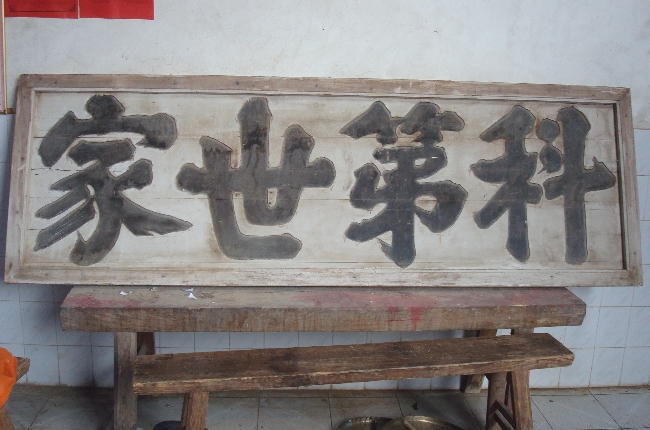 科第世家